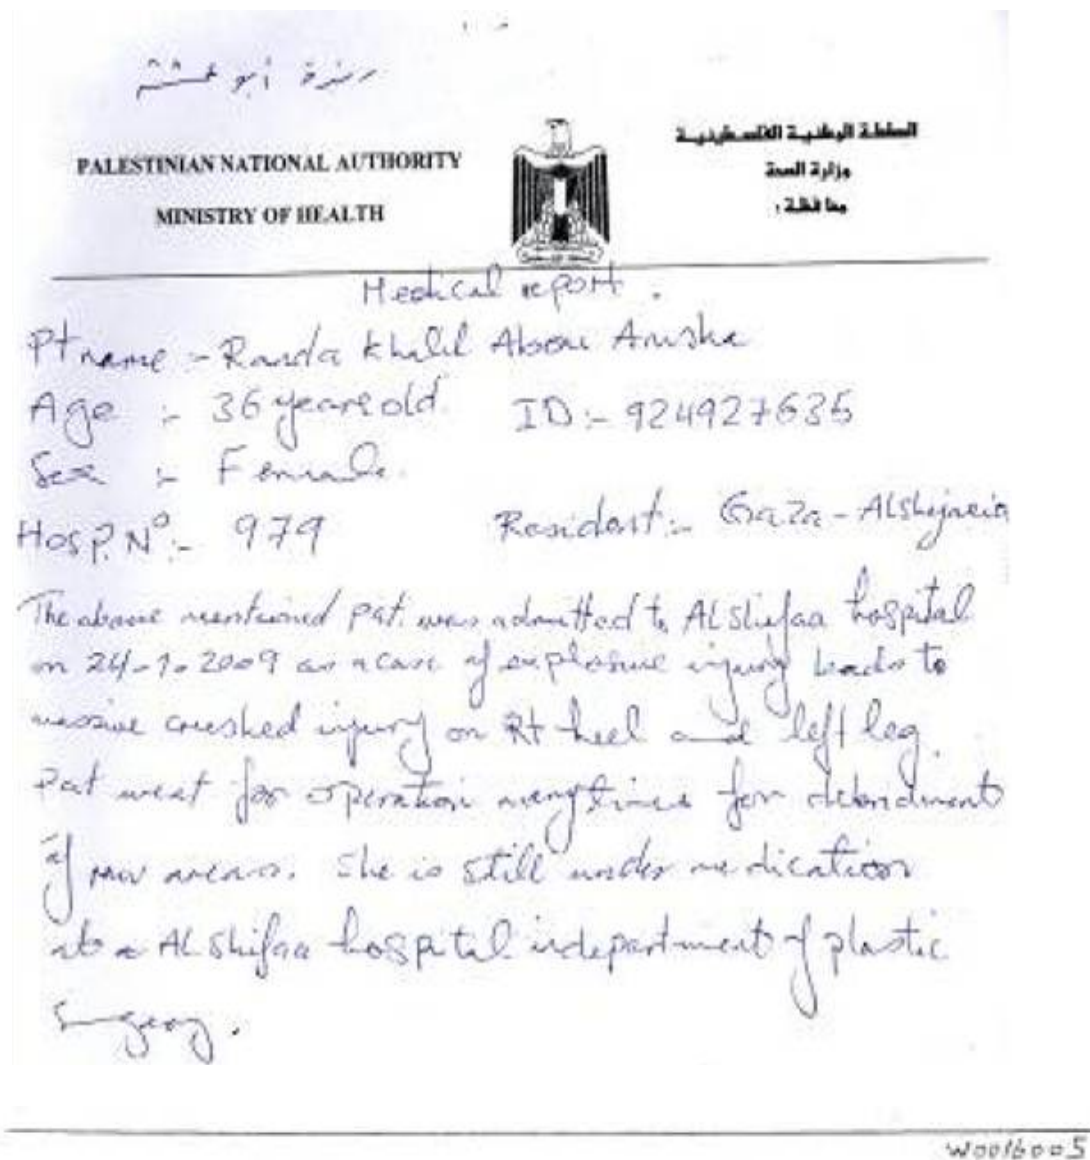 رندة أبو
PALESTINIAN NATIONAL AUTHORITY
MINISTRY OF HEALTH
السلطة الوطنية الفلسطينية
وزارة الصحة
محافظة :
Medical report.
Pt name :- Randa Khalil Abou Amsha
Age :- 36 years old. ID:- 924927635
Sex :- Female.
Hosp. Nº:- 979 Resident:- Gaza - Alshijaeia
The above mentioned pat. was admitted to Al Shifaa hospital
on 24-1-2009 as a case of explosure injury leads to
massive crushed injury on Rt heel and left leg.
Pat went for operation many times for debridment
of raw areas. She is still under medication
at a Al Shifaa hospital in department of plastic
Surgery.
W0016005